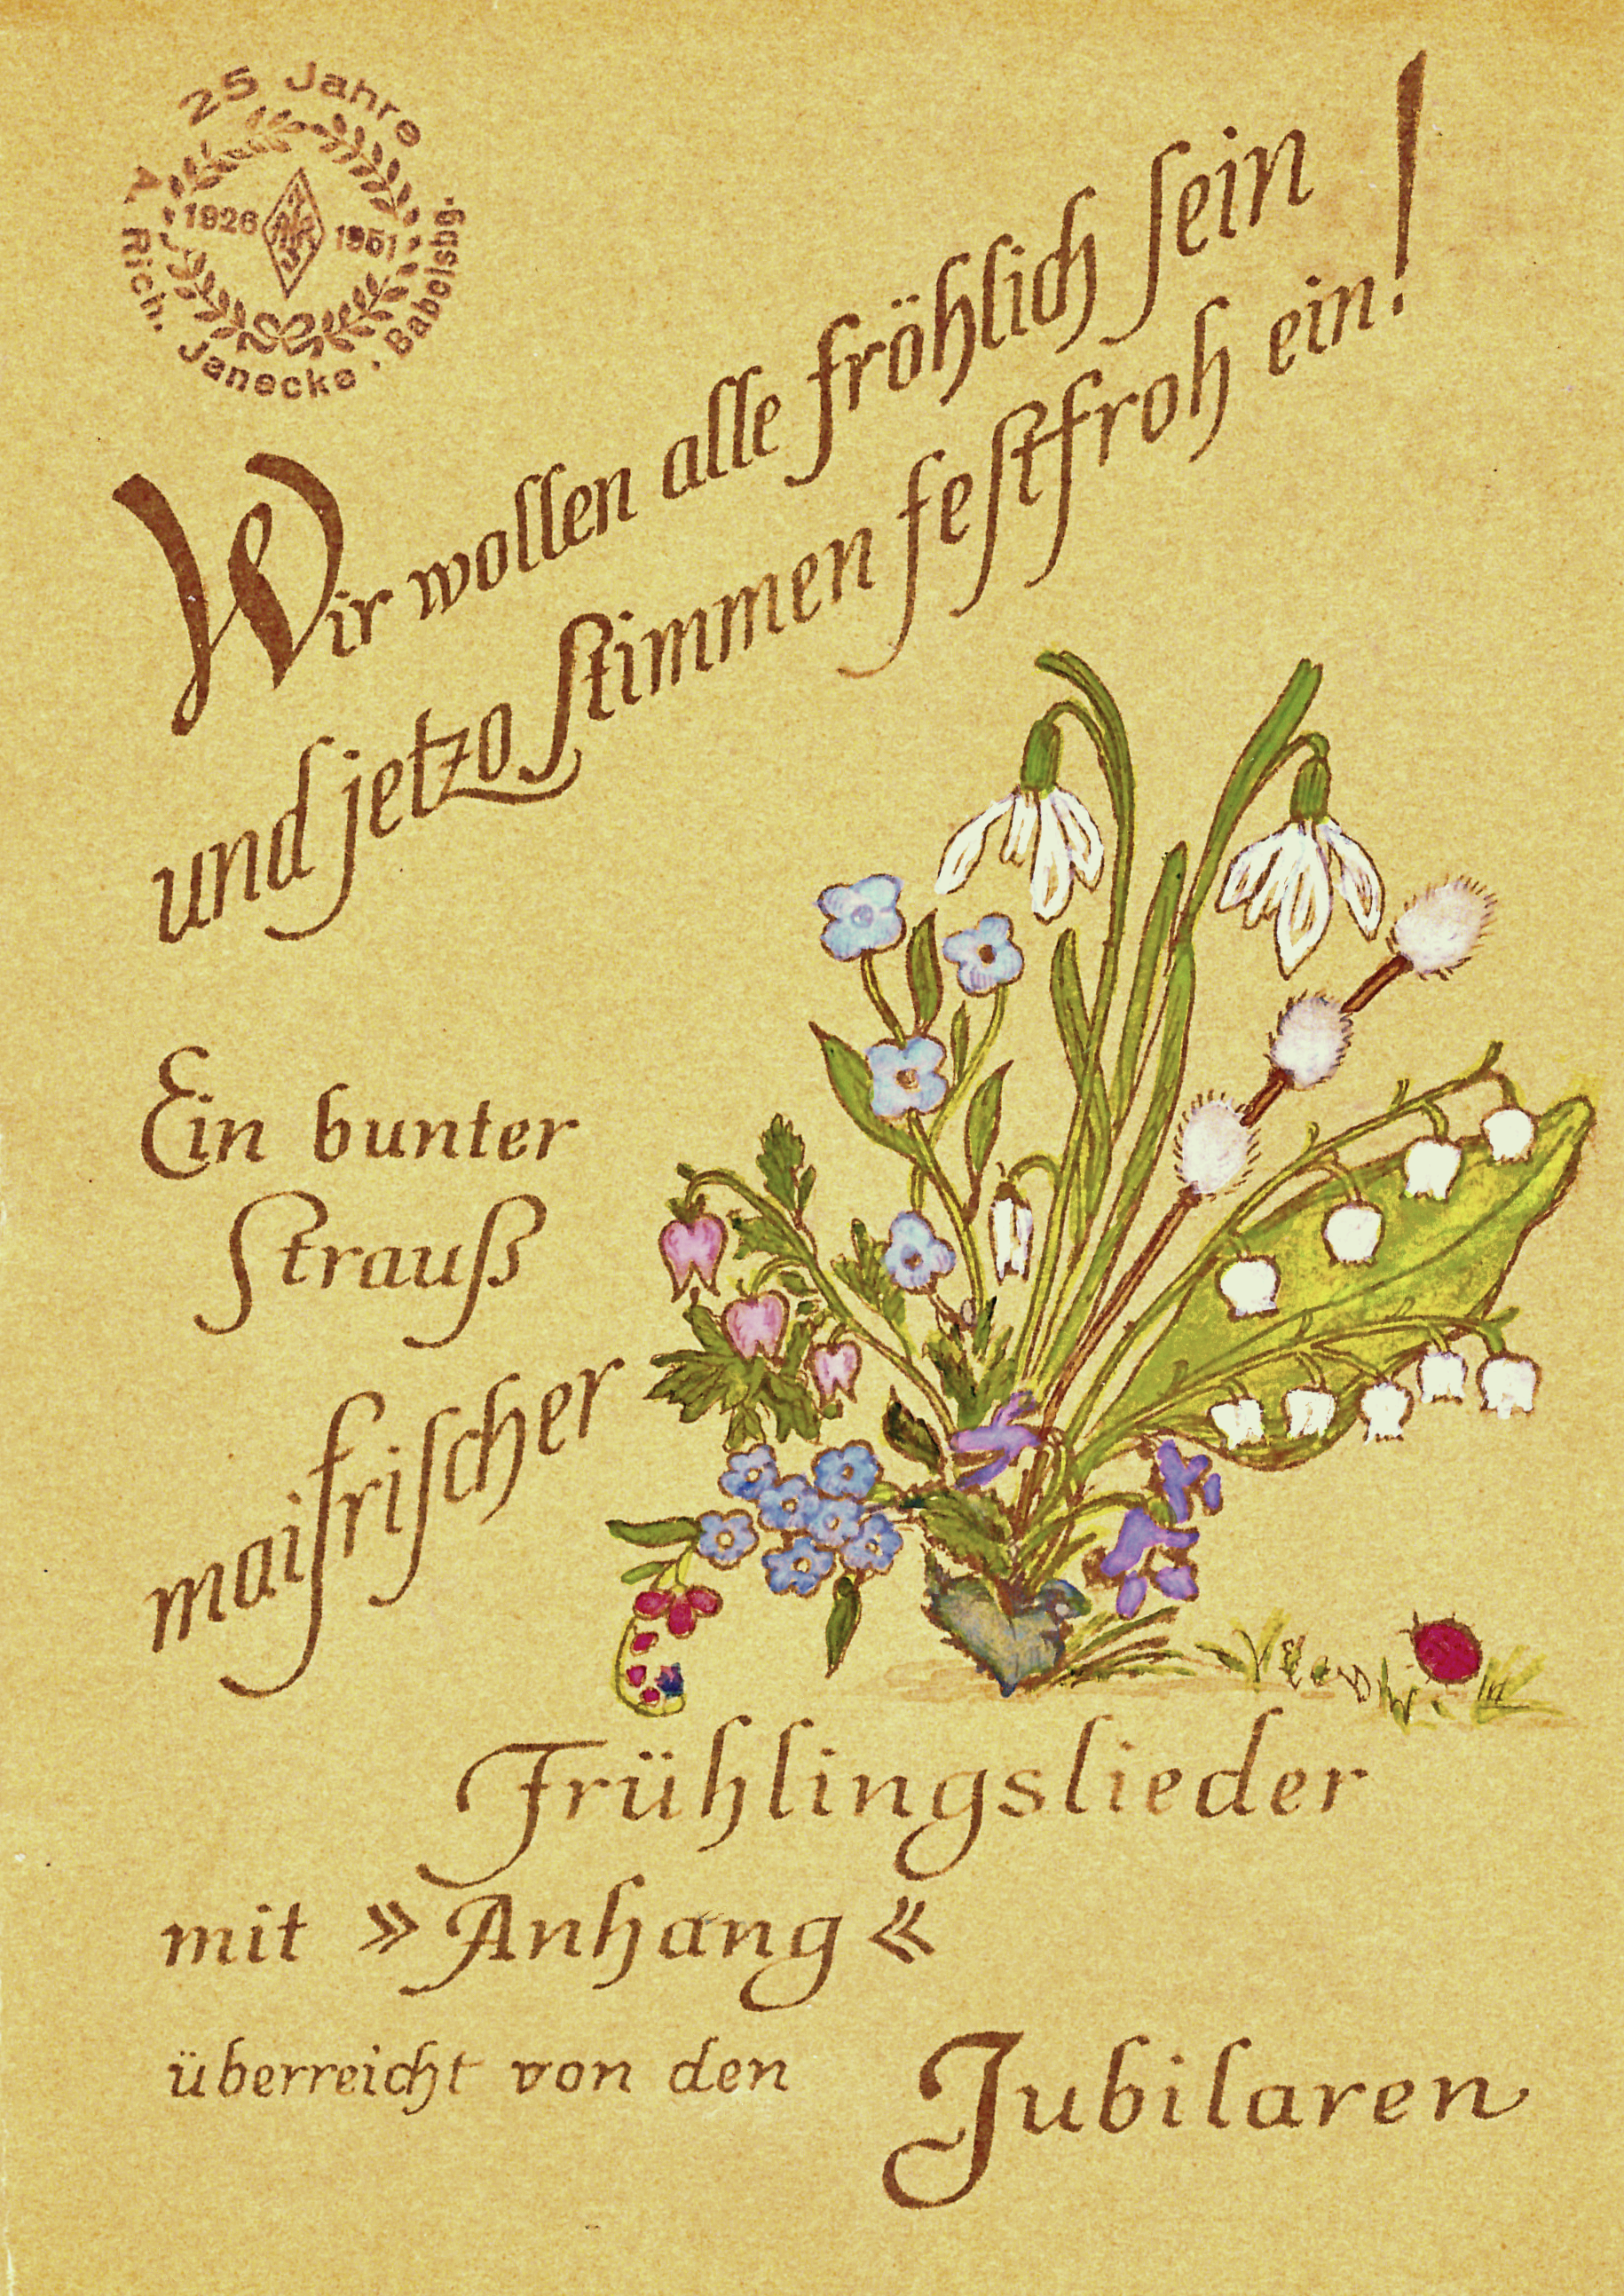 25 Jahre
1926 1951
Rich. Janecke · Babelsbg.
Wir wollen alle fröhlich sein
und jetzo stimmen festfroh ein!
Ein bunter
Strauß
maifrischer
Frühlingslieder
mit »Anhang«
überreicht von den Jubilaren